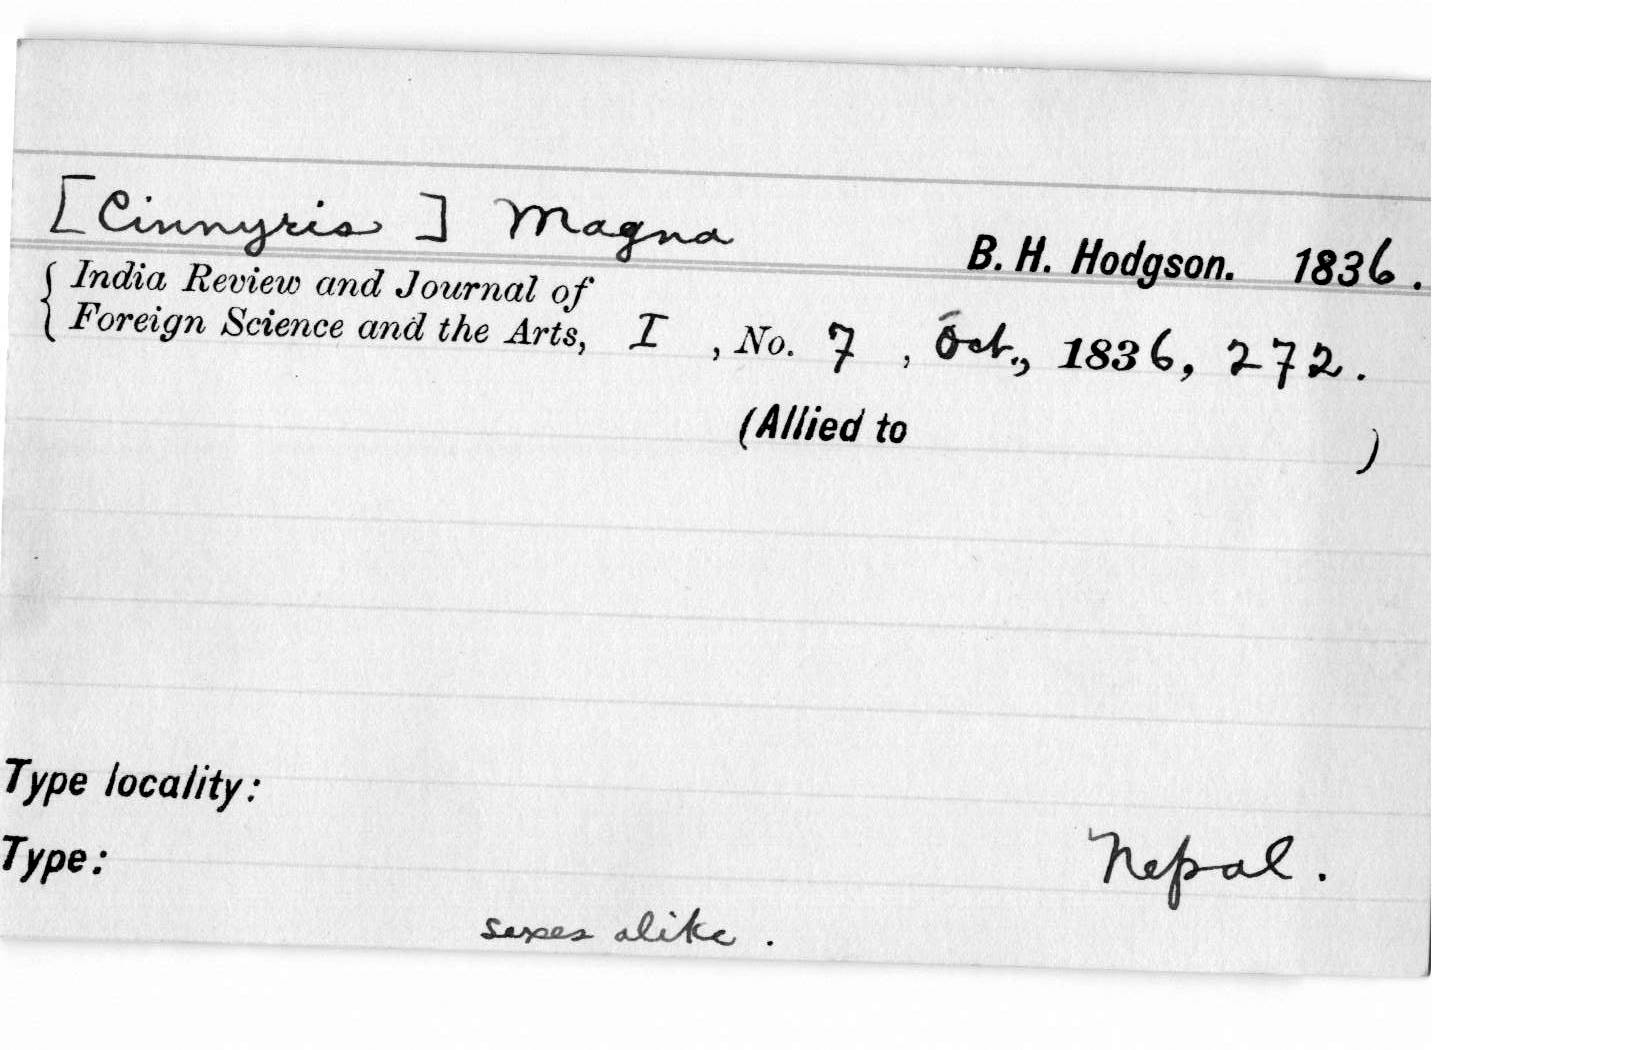 [Cinnyris] Magna
B. H. Hodgson. 1836.
India Review and Journal of
Foreign Science and the Arts, I , No. 7 , Oct., 1836, 272.
(Allied to )
Type locality:
Nepal.
Type:
sexes alike.